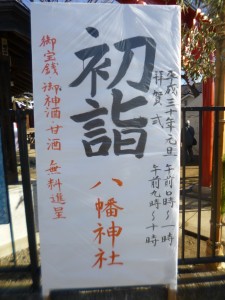 平成三十年元旦
拝賀式 午前0時～一時
午前九時～十時
初詣
八幡神社
御宝銭 御神酒・甘酒 無料進呈